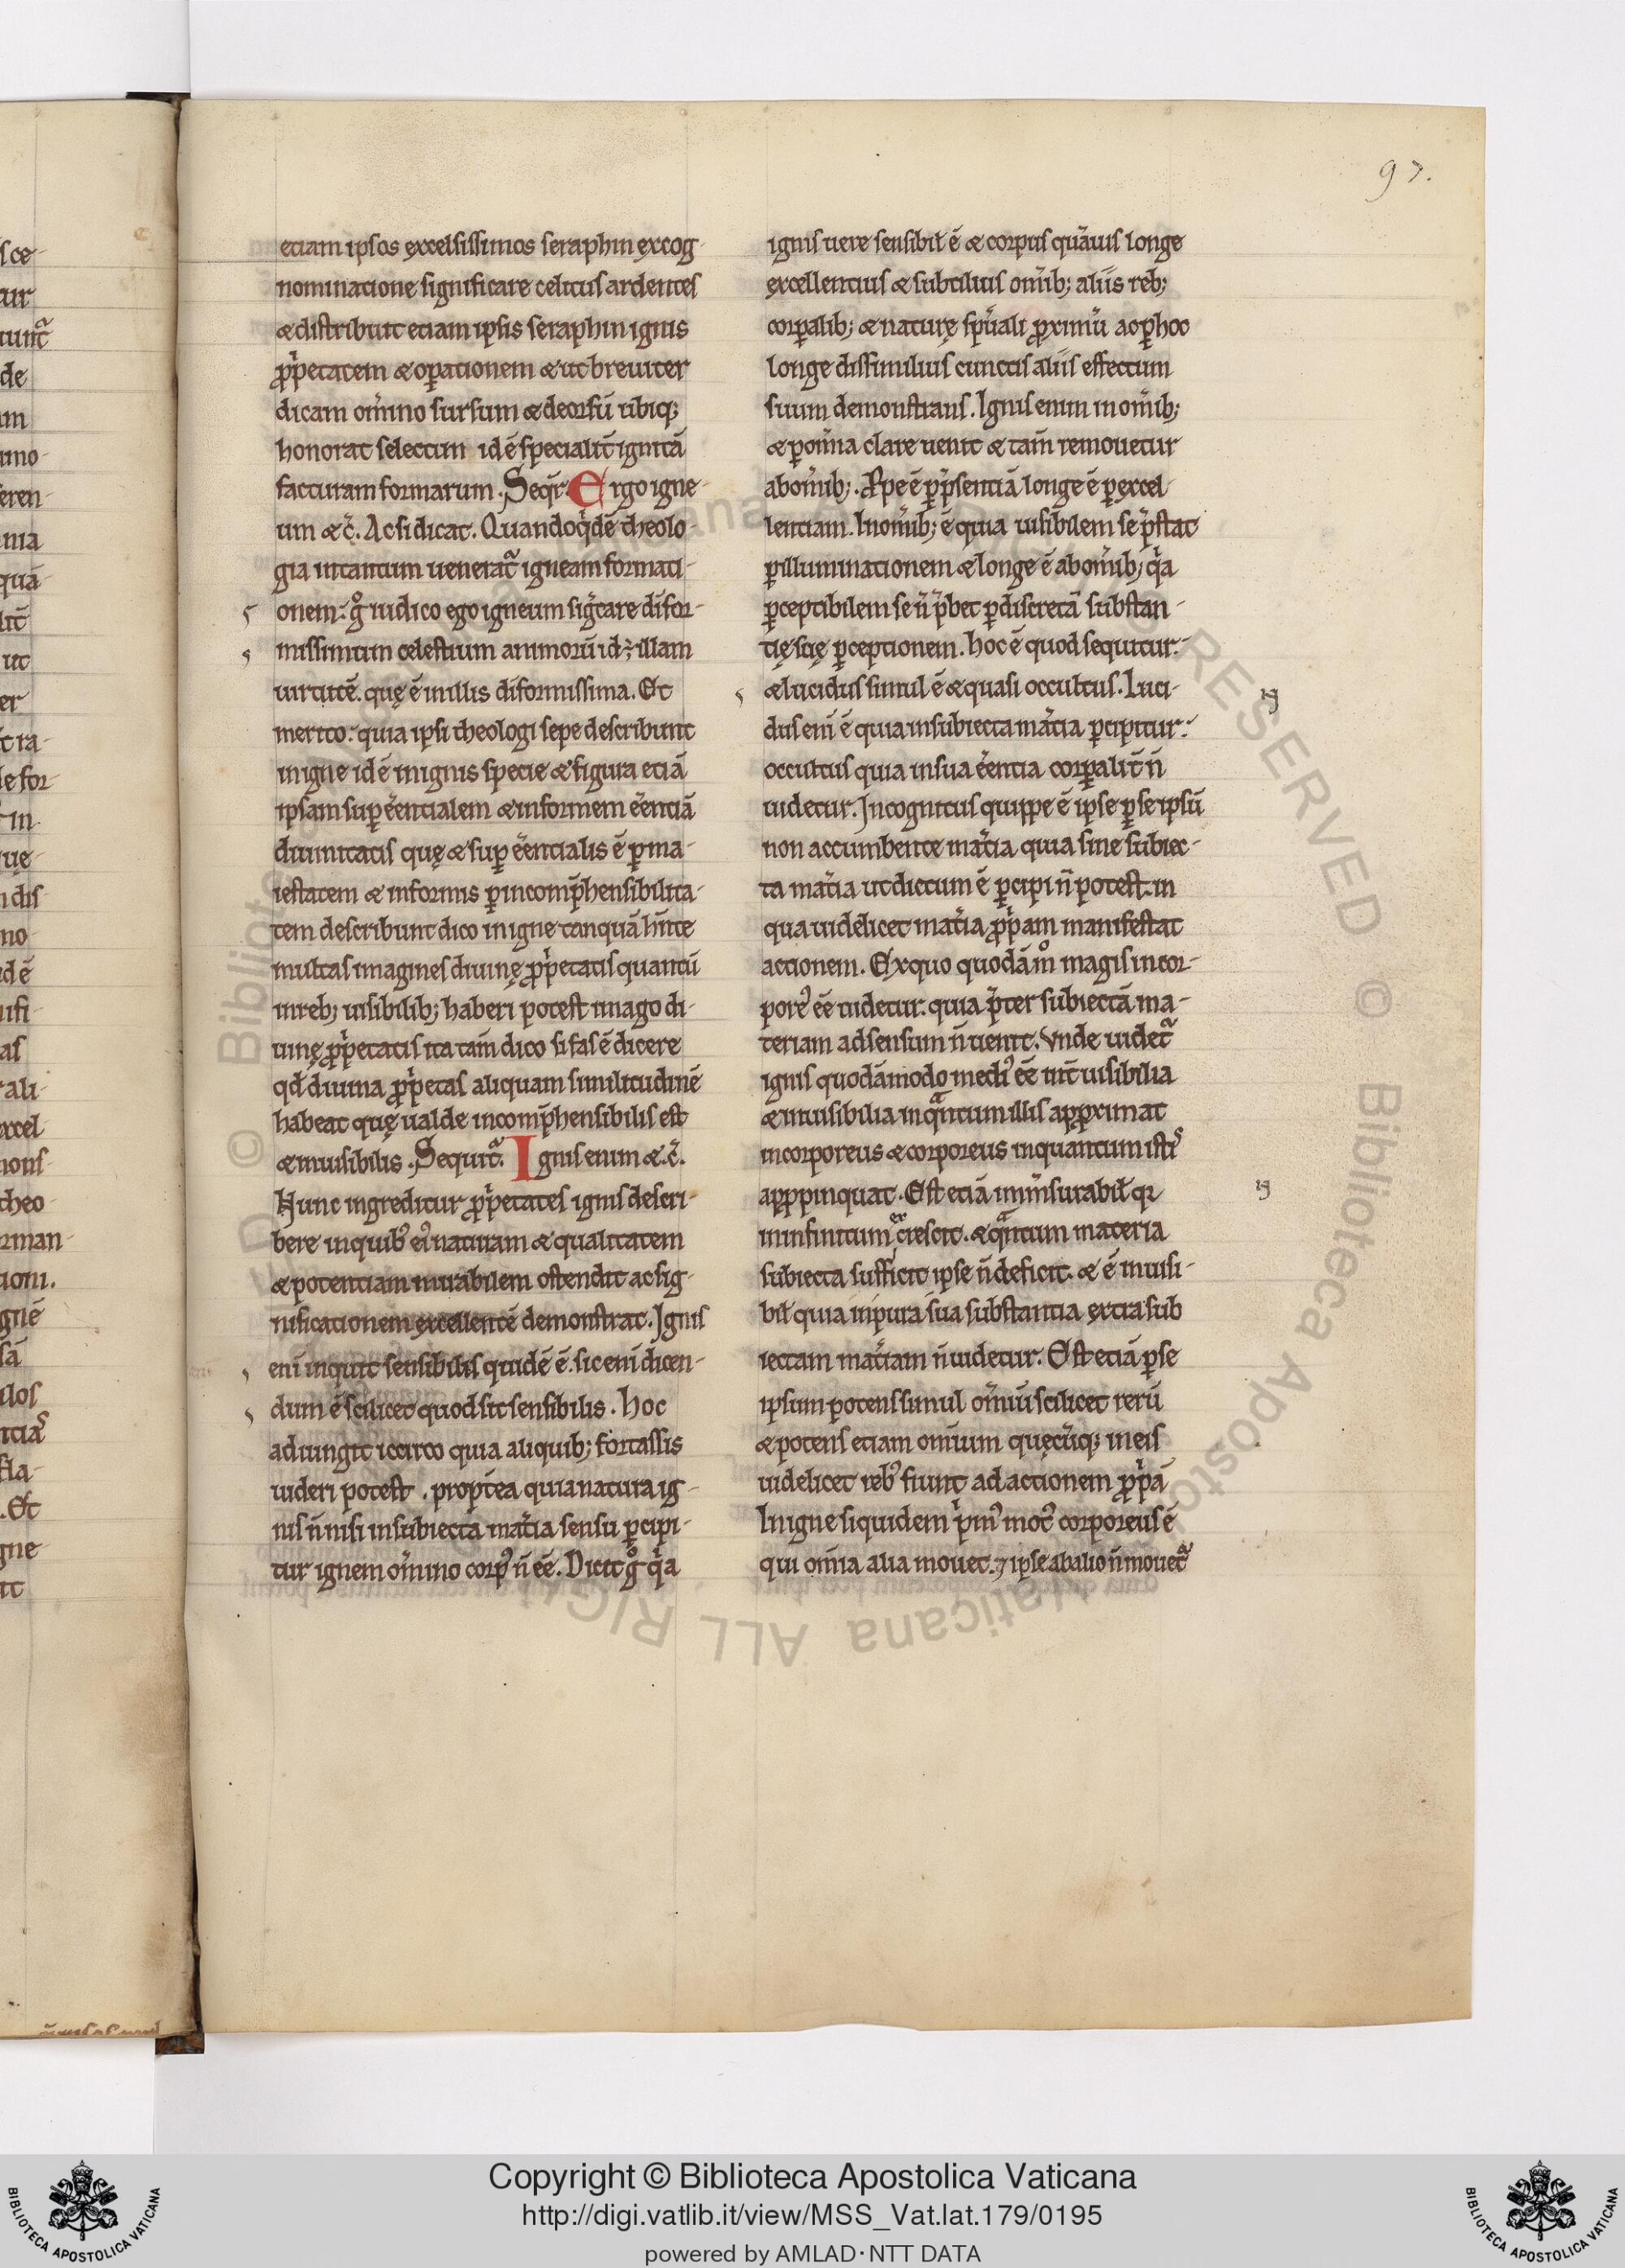 97.
etiam ipsos excelsissimos seraphin ex cog-
nominatione significare celitus ardentes
& distribuit etiam ipsis seraphin ignis
ꝓp̍etatem & oꝑationem & ut breuiter
dicam om̅ino sursum & deorsū ubiq;
honorat selectum id ē specialit̅ ignitā
facturam formarum. Seqr̅ Ergo igne-
um &c̅. Ac si dicat. Quandoq̍dē theolo-
gia intantum uenerat᷑ igneam formati-
onem: g̊ iudico ego igneum sig̅care difor-
missimum celestium animorū id ÷ illam
uirtutē. quę ē in illis diformissima. Et
merito: quia ipsi theologi sepe describunt
in igne id ē in ignis specie & figura etiā
ipsam suꝑ ee̅ntialem & informem ee̅ntiā
diuinitatis quę & suꝑ ee̅ntialis ē ꝑ ma-
iestatem & informis ꝑ incomp̅hensibilita-
tem describunt dico in igne tanquā hn̅te
multas imagines diuinę ꝓp̍etatis quantū
in reb; uisibilib; haberi potest imago di-
uinę ꝓp̍etatis ita tam̅ dico si fas ē dicere
qd̅ diuina ꝓp̍etas aliquam similitudinē
habeat quę ualde incomp̅hensibilis est
& inuisibilis. Sequit᷑. Ignis enim &c̅.
Hunc ingreditur ꝓp̍etates ignis descri-
bere in quibꝰ eiꝰ naturam & qualitatem
& potentiam mirabilem ostendit ac sig-
nificationem excellentē demonstrat. Ignis
eni̅ inquit sensibilis quidē ē. sic eni̅ dicen-
dum ē scilicet quod sit sensibilis. Hoc
adiungit iccirco quia aliquib; fortassis
uideri potest. propt̅ea quia natura ig-
nis n̅ nisi in subiecta mat̅ia sensu ꝑcipi-
tur ignem om̅ino corpꝰ n̅ ee̅. Dicit g̊ q̍a
ignis uere sensibil̅ ē & corpus quāuis longe
excellentius & subtilius om̅ib; aliis reb;
corꝑalib; & naturę sp̅uali ꝓximū ac ꝑ hoc
longe dissimilius cunctis aliis effectum
suum demonstrans. Ignis enim in om̅ib;
& ꝑ om̅ia clare uenit & tam̅ remouetur
ab om̅ib;. Rpe ē ꝑ p̅sentiā longe ē ꝑ excel-
lentiam. In om̅ib; ē quia uisibilem se p̅stat
ꝑ illuminationem & longe ē ab om̅ib; q̍a
ꝑceptibilem se n̅ p̅bet ꝑ discretā substan-
tię suę ꝑceptionem. Hoc ē quod sequitur.
& lucidus simul ē & quasi occultus. Luci-
dus eni̅ ē quia in subiecta mat̅ia ꝑcipitur:
occultus quia in sua ee̅ntia corꝑalit̅ n̅
uidetur. Incognitus quippe ē ipse ꝑ se ipsū
non accumbente mat̅ia quia sine subiec-
ta mat̅ia ut dictum ē ꝑcipi n̅ potest. in
qua uidelicet mat̅ia ꝓp̍am manifestat
actionem. Ex quo quodā m̊ magis incor-
poreꝰ ee̅ uidetur. quia p̅ter subiectā ma-
teriam ad sensum n̅ uenit. Vnde uidet᷑
ignis quodāmodo mediꝰ ee̅ int̅ uisibilia
& inuisibilia inqᷓntum illis apꝓximat
incorporeus & corporeus inquantum istis
apꝓpinquat. Est etiā inm̅surabil̅ qꝛ
in infinitum crescit. & qᷓntum materia
subiecta sufficit ipse n̅ deficit. & ē inuisi-
bil̅ quia in pura sua substantia extra sub
iectam mat̅iam n̅ uidetur. Est etiā ꝑ se
ipsum potens simul om̅iū scilicet rerū
& potens etiam omnium quęcūq; in eis
uidelicet rebꝰ fiunt ad actionem ꝓp̍ā
In igne siquidem p̍mꝰ motꝰ corporeus ē
qui om̅ia alia mouet. ⁊ ipse ab alio n̅ mouet᷑
Copyright © Biblioteca Apostolica Vaticana
http://digi.vatlib.it/view/MSS_Vat.lat.179/0195
powered by AMLAD·NTT DATA
BIBLIOTECA APOSTOLICA VATICANA
BIBLIOTECA APOSTOLICA VATICANA